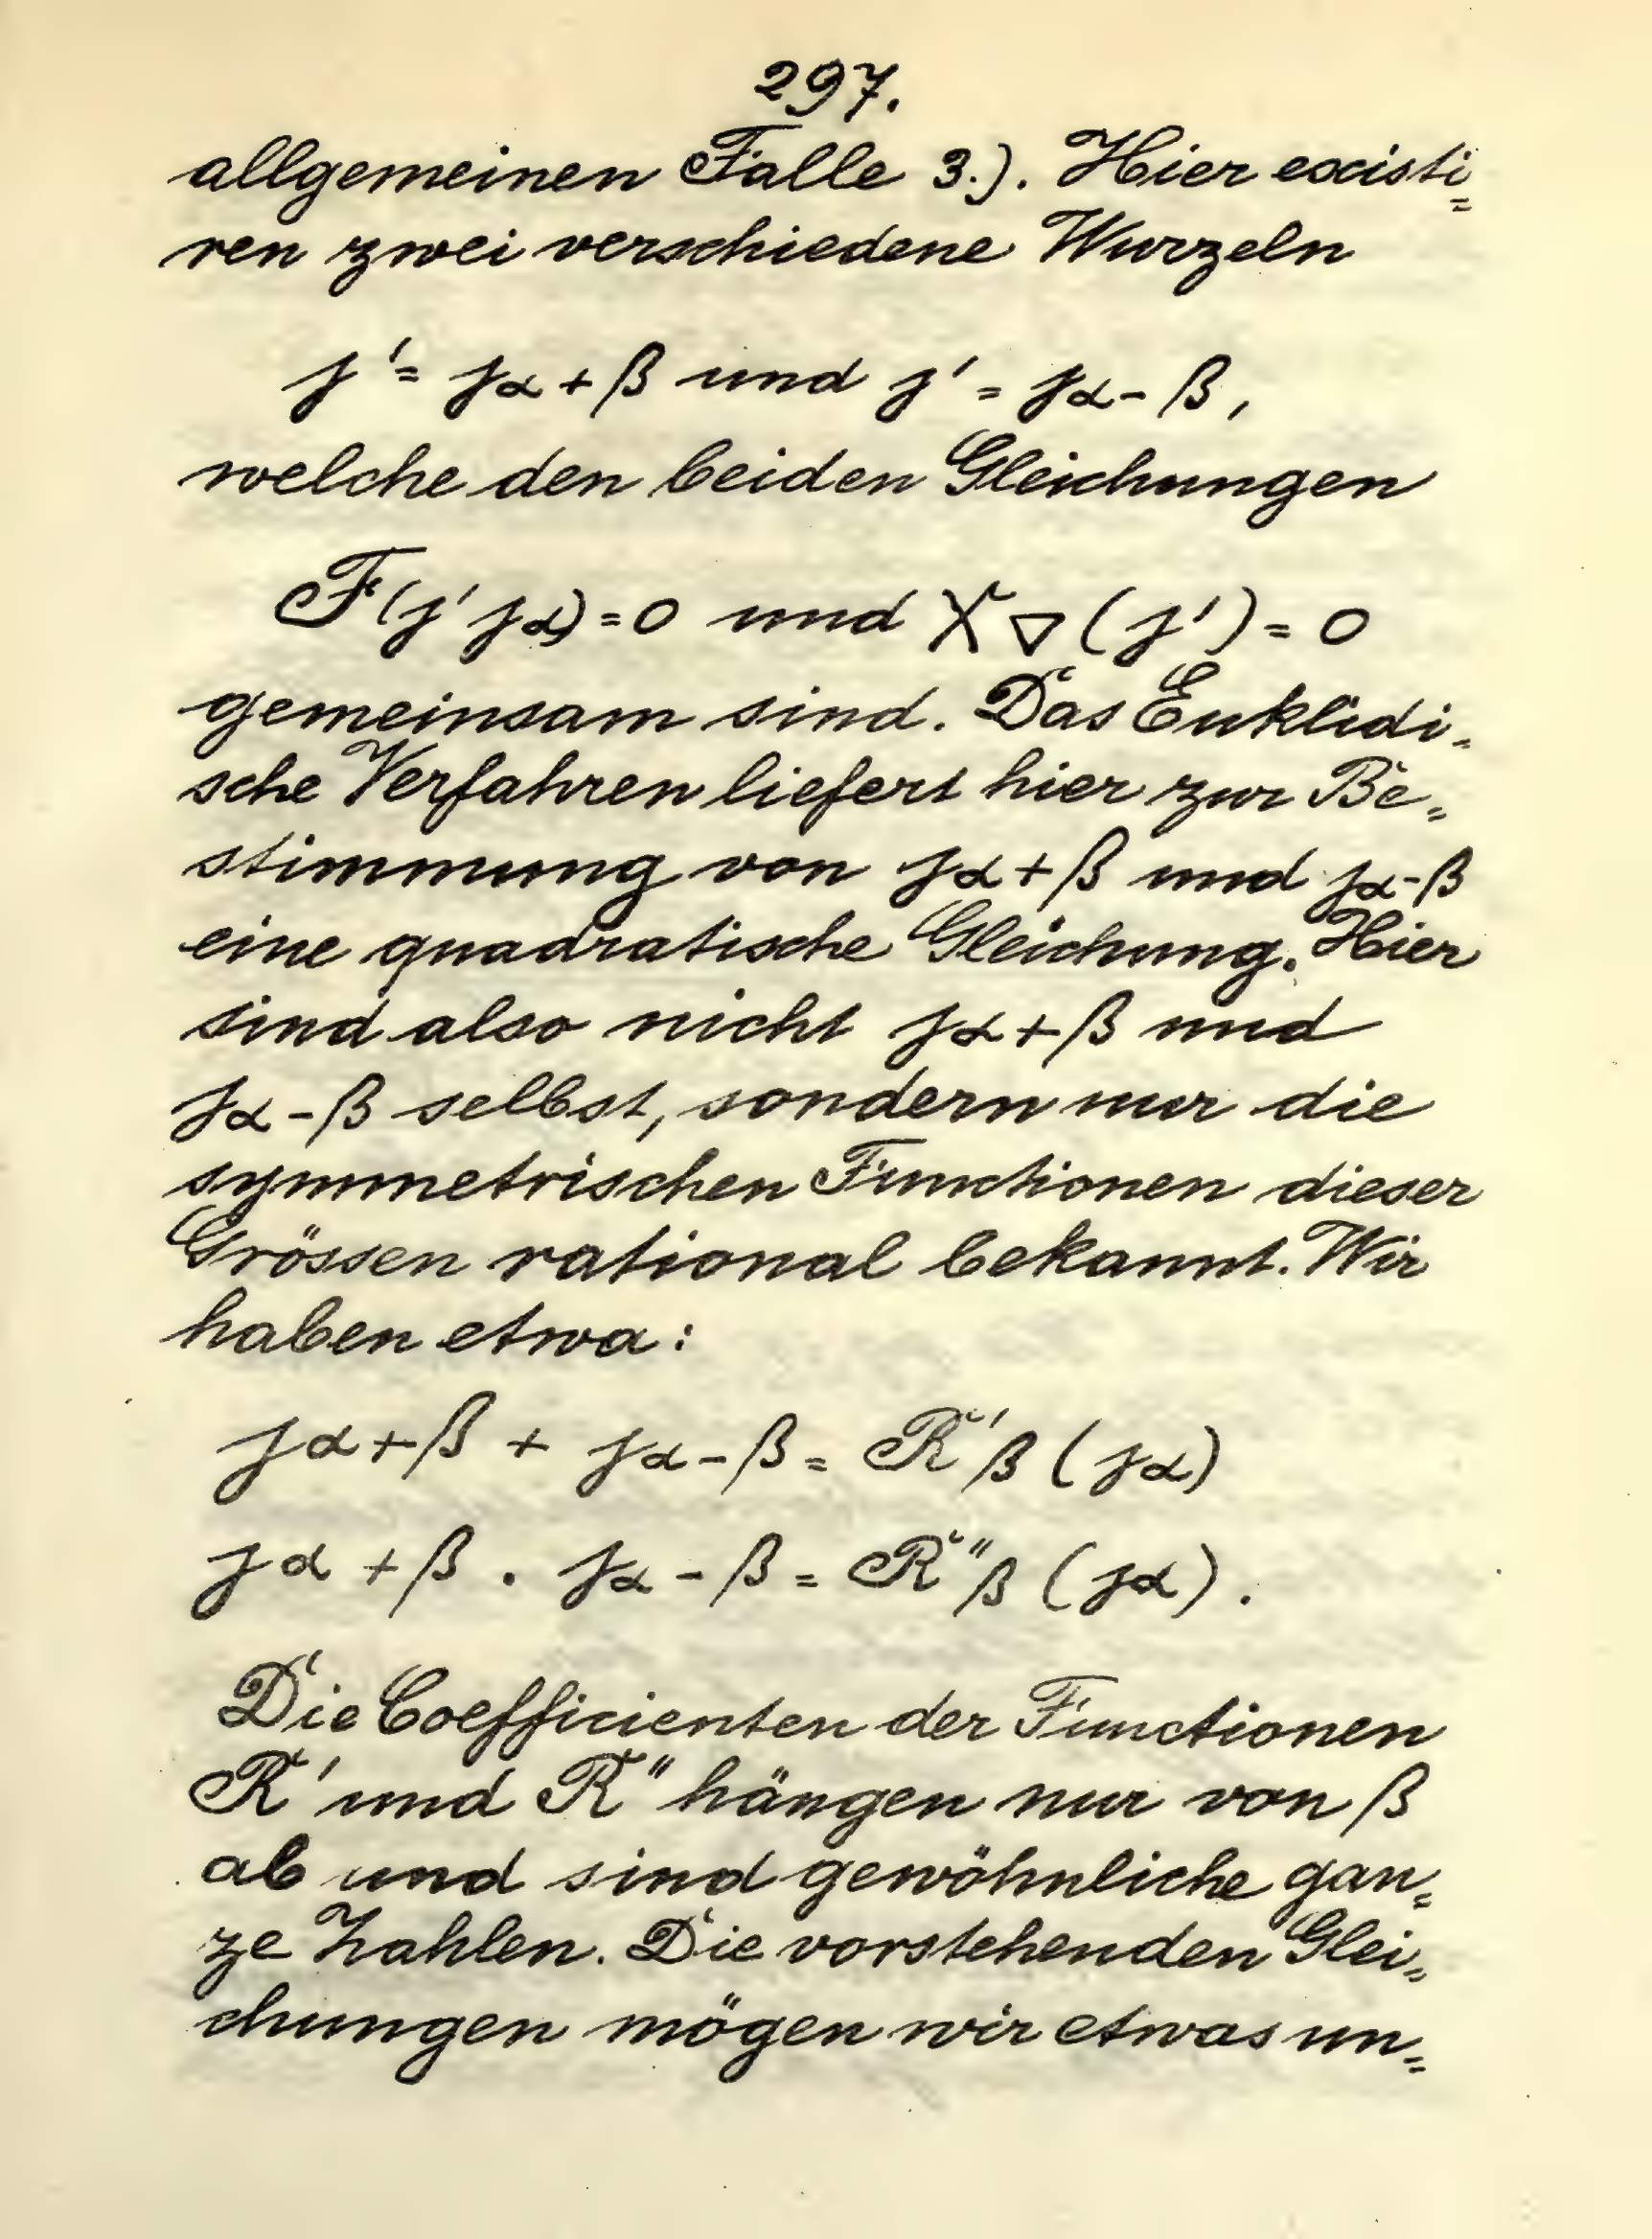 297.
allgemeinen Falle 3.). Hier existi=
ren zwei verschiedene Wurzeln
j' = jα+β und j' = jα-β,
welche den beiden Gleichungen
F(j' jα) = 0 und X∇(j') = 0
gemeinsam sind. Das Euklidi=
sche Verfahren liefert hier zur Be=
stimmung von jα+β und jα-β
eine quadratische Gleichung. Hier
sind also nicht jα+β und
jα-β selbst, sondern nur die
symmetrischen Functionen dieser
Grössen rational bekannt. Wir
haben etwa:
jα+β + jα-β = R'β (jα)
jα+β . jα-β = R''β (jα).
Die Coefficienten der Functionen
R' und R'' hängen nur von β
ab und sind gewöhnliche gan=
ze Zahlen. Die vorstehenden Glei=
chungen mögen wir etwas un=